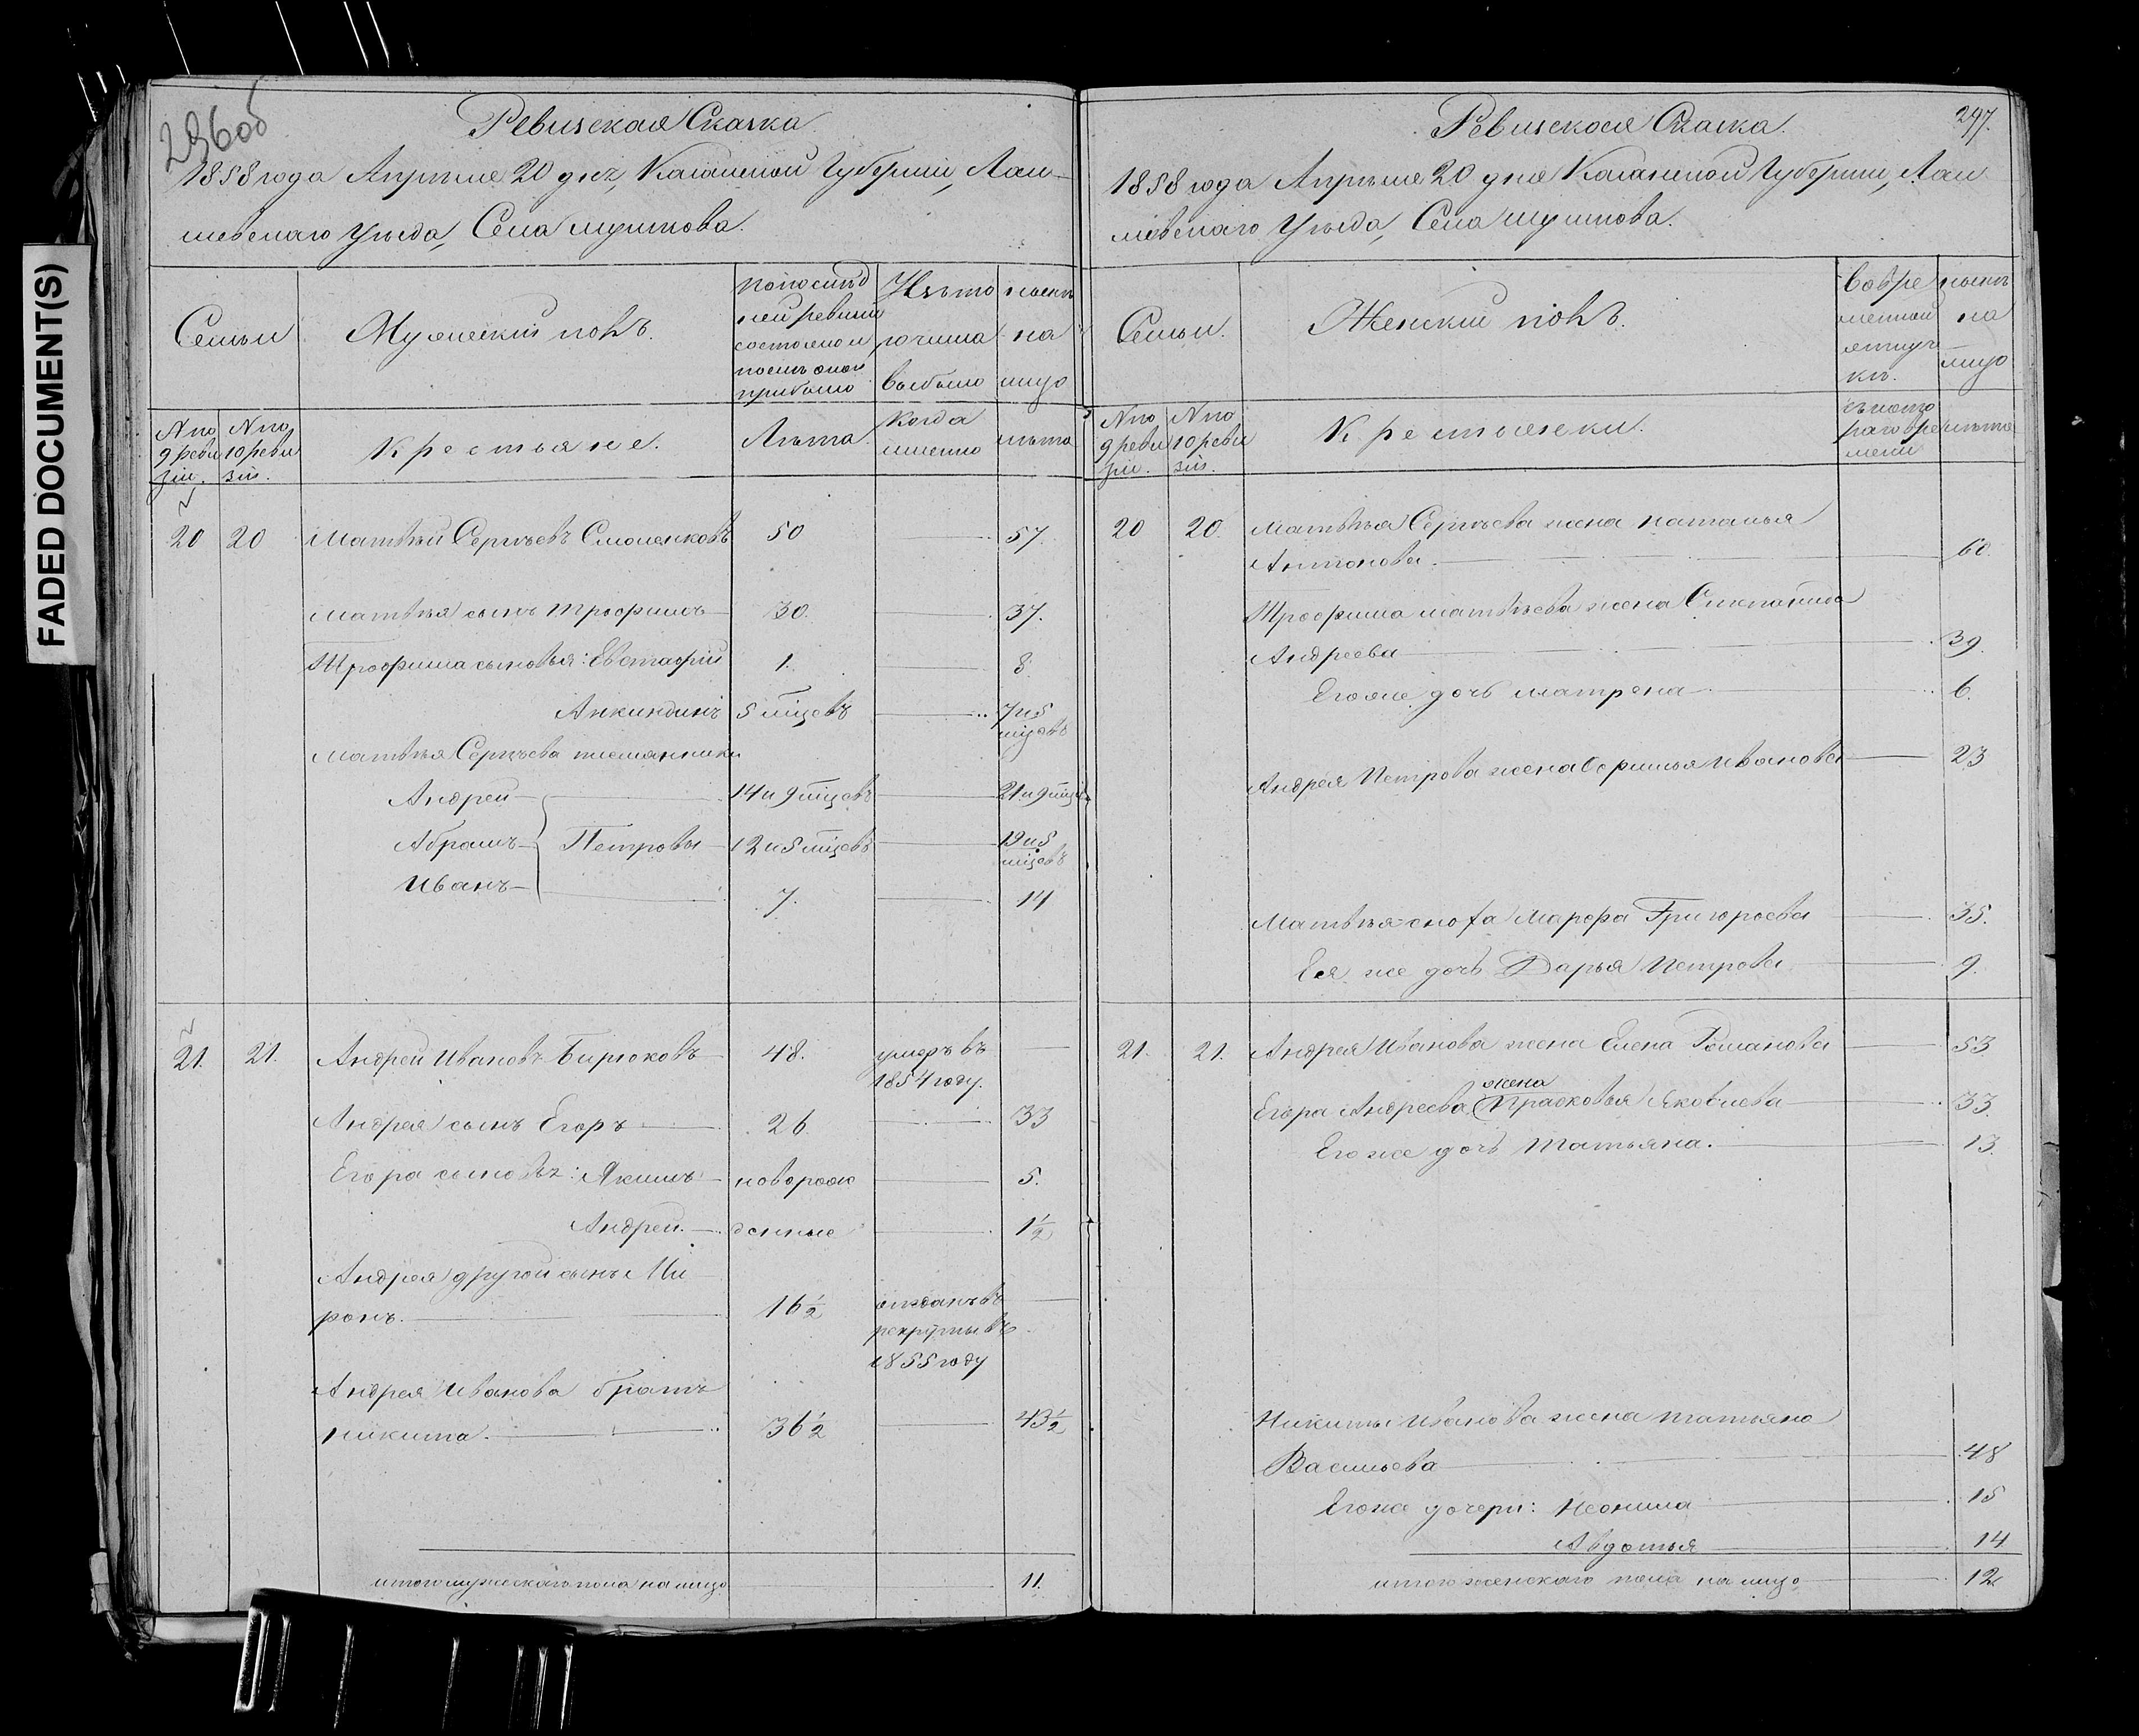 FADED DOCUMENT(S)
296об
Ревизская Сказка
1858 года Апрѣля 20 дня, Казанской Губерніи, Лаи-
шевскаго Уѣзда, Села Шушкова.
Семьи
Мужескій полъ.
По послѣд
ней ревизіи
состояло и
послѣ оной
прибыло
Изъ того
числа
выбыло
нынѣ
на
лицо
N по
9 реви
зіи.
N по
10 реви
зіи.
Крестьяне.
Лѣта.
Когда
именно
лѣта
20 20 Матвѣй Сергѣевъ Смоленковъ 50 57.
Матвѣя сынъ Трофимъ 30. 37.
Трофима сыновья: Евстафій 1. 8
Анкиндинъ 5 мѣцевъ 7 и 5 мѣцевъ
Матвѣя Сергѣева племянники
Андрей 14 и 9 мѣцевъ 21 и 9 мѣце
Абрамъ Петровы 12 и 5 мѣцевъ 19 и 5 мѣцевъ
Иванъ 7. 14
21. 21. Андрей Ивановъ Бирюковъ 48. умеръ въ
1854 году.
Андрея сынъ Егоръ 26 33
Егора сыновья: Якимъ новорож 5.
Андрей. денные 1½
Андрея другой сынъ Ми
ронъ. 16½ отданъ въ
рекруты въ
1855 году
Андрея Иванова братъ
Никита. 36½ 43½
итого мужескаго пола на лицо 11.
297.
Ревизская Сказка.
1858 года Апрѣля 20 дня Казанской Губерніи, Лаи
шевскаго Уѣзда, Села Шушкова.
Семьи.
Женскій полъ.
Во вре
менной
отлуч
кѣ.
нынѣ
на
лицо
N по
9 реви
зіи.
N по
10 реви
зіи.
Крестьянки.
съ кото
раго вре
мени
лѣта
20 20. Матвѣя Сергѣева жена Наталья
Антонова. 60.
Трофима Матвѣева жена Степанида
Андреева 39.
Его же дочь Матрена 6.
Андрея Петрова жена Ефимья Иванова 23
Матвѣя сноха Марфа Григорьева 35.
Ея же дочь Дарья Петрова 9.
21. 21. Андрея Иванова жена Елена Романова 53
жена
Егора Андреева Прасковья Яковлева 33
Его же дочь Татьяна. 13.
Никиты Иванова жена Татьяна
Васильева 48
Его же дочери: Неонила 15
Авдотья 14
итого женскаго пола на лицо 12